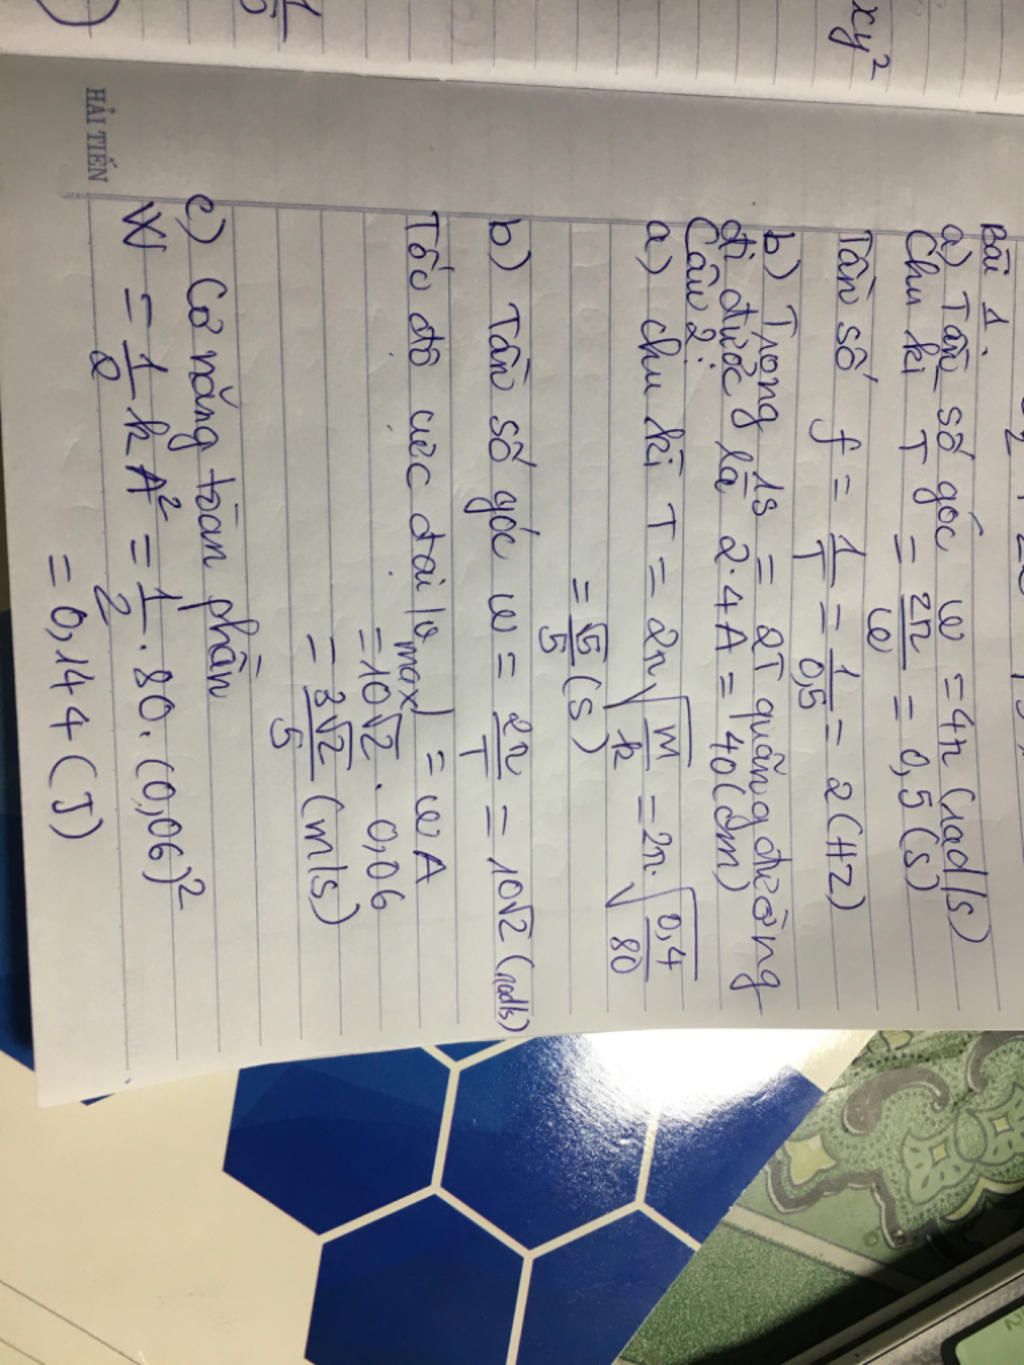 xy²
HẢI TIẾN
Bài 1.
a) Tần số góc ω = 4π (rad/s)
Chu kì T = 2π/ω = 0,5 (s)
Tần số f = 1/T = 1/0,5 = 2 (Hz)
b) Trong 1s = 2T quãng đường
đi được là 2.4A = 40 (cm)
Câu 2:
a) Chu kì T = 2π√(m/k) = 2π.√(0,4/80)
= √5/5 (s)
b) Tần số góc ω = 2π/T = 10√2 (rad/s)
Tốc độ cực đại |v max| = ωA
= 10√2 . 0,06
= 3√2/5 (m/s)
c) Cơ năng toàn phần
W = 1/2 kA² = 1/2 . 80 . (0,06)²
= 0,144 (J)